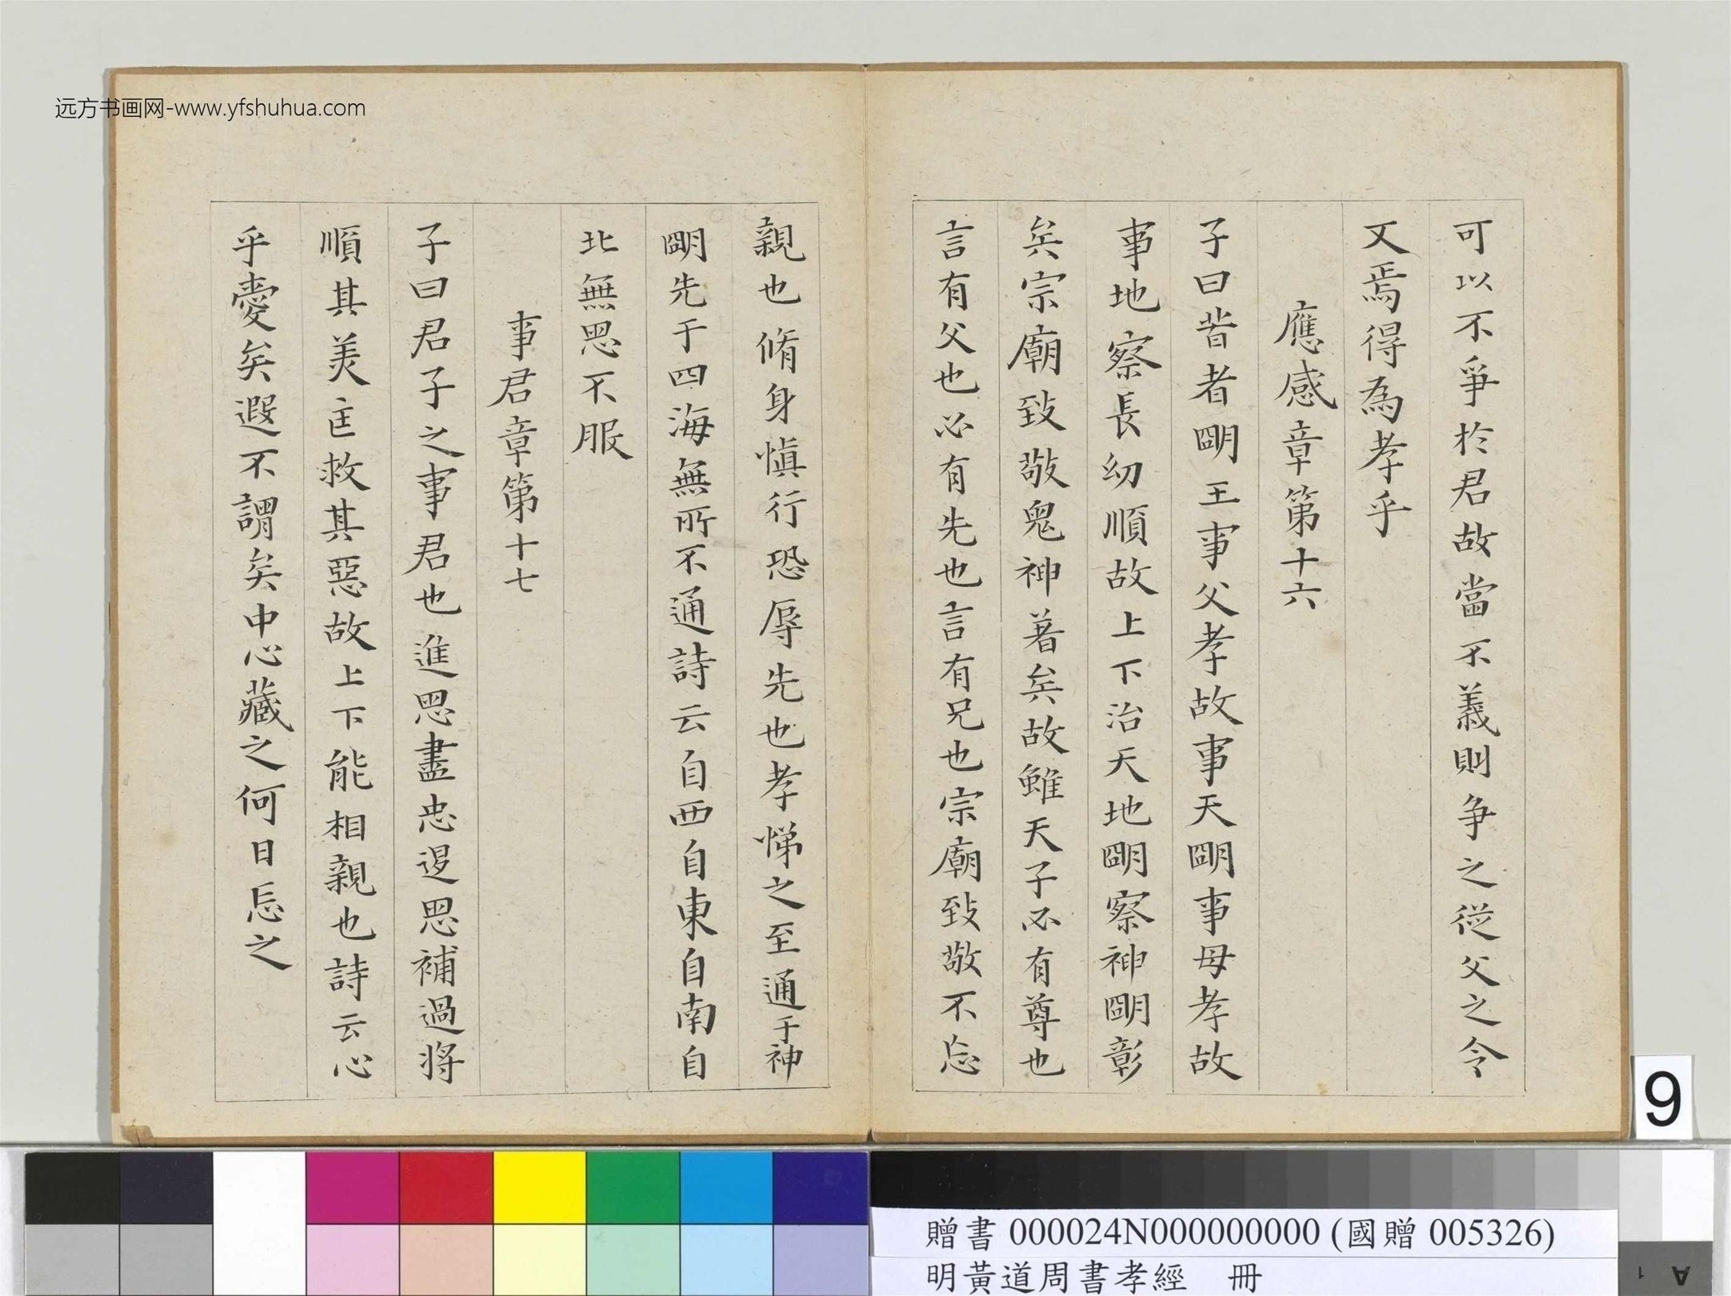 远方书画网-www.yfshuhua.com
可以不爭於君故當不義則争之從父之令
又焉得為孝乎
應感章第十六
子曰昔者明王事父孝故事天明事母孝故
事地察長幼順故上下治天地明察神明彰
矣宗廟致敬鬼神著矣故雖天子必有尊也
言有父也必有先也言有兄也宗廟致敬不忘
親也脩身慎行恐辱先也孝悌之至通于神
明先于四海無所不通詩云自西自東自南自
北無思不服
事君章第十七
子曰君子之事君也進思盡忠退思補過將
順其美匡救其惡故上下能相親也詩云心
乎愛矣遐不謂矣中心藏之何日忘之
9
贈書 000024N000000000 (國贈 005326)
明黃道周書孝經 冊
A 1